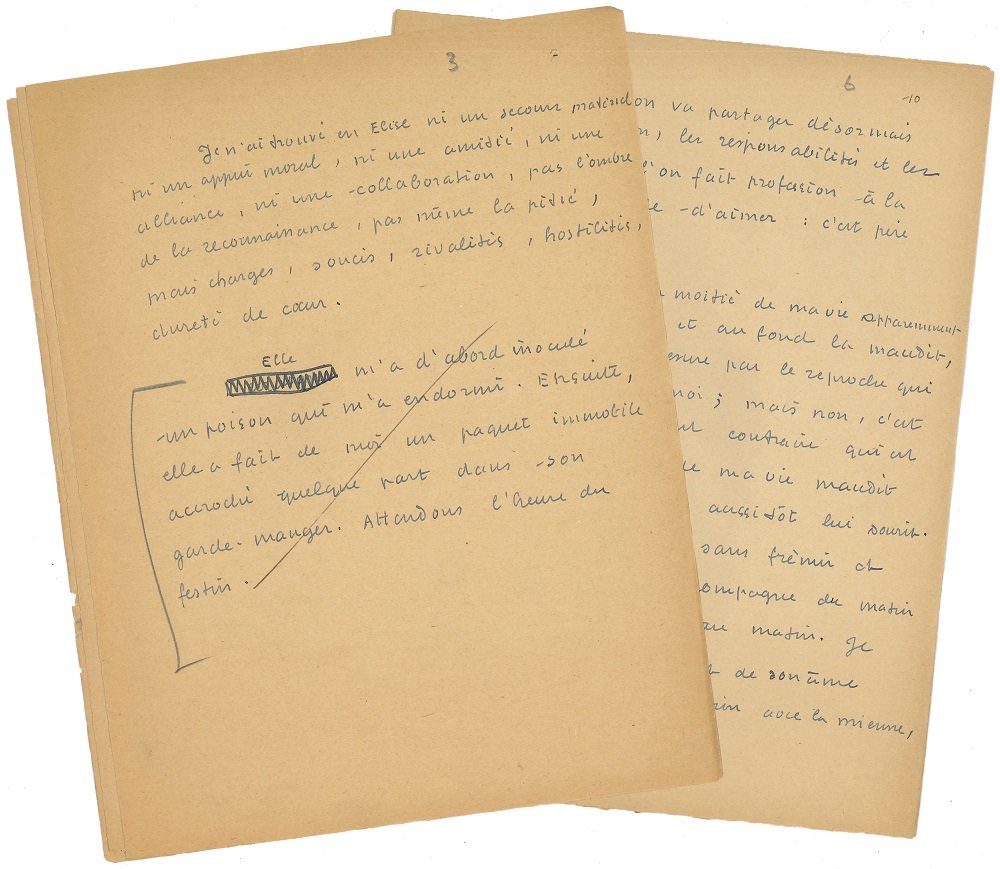 3
Je n'ai trouvé en Elise ni un secours matériel
ni un appui moral, ni une amitié, ni une
alliance, ni une collaboration, pas l'ombre
de la reconnaissance, pas même la pitié,
mais charges, soucis, rivalités, hostilités,
dureté de cœur.
Elle
m'a d'abord inoculé
un poison qui m'a endormi. Ensuite,
elle a fait de moi un paquet immobile
accroché quelque part dans son
garde-manger. Attendons l'heure du
festin.
6
10
on va partager désormais
les responsabilités et les
on fait profession à la
d'aimer : c'est pire
moitié de ma vie apparemment
et au fond la maudit,
par le reproche qui
moi ; mais non, c'est
contraire qui est
ma vie maudit
aussitôt lui sourit.
sans frémir et
compagne du matin
au matin. Je
de son âme
avec la mienne,